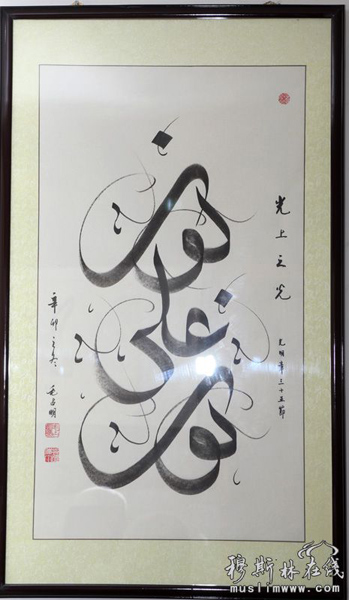 نور
على
نور
光上之光
光明章三十五节
辛卯之冬 毛占明
穆斯林在线
muslimwww.com